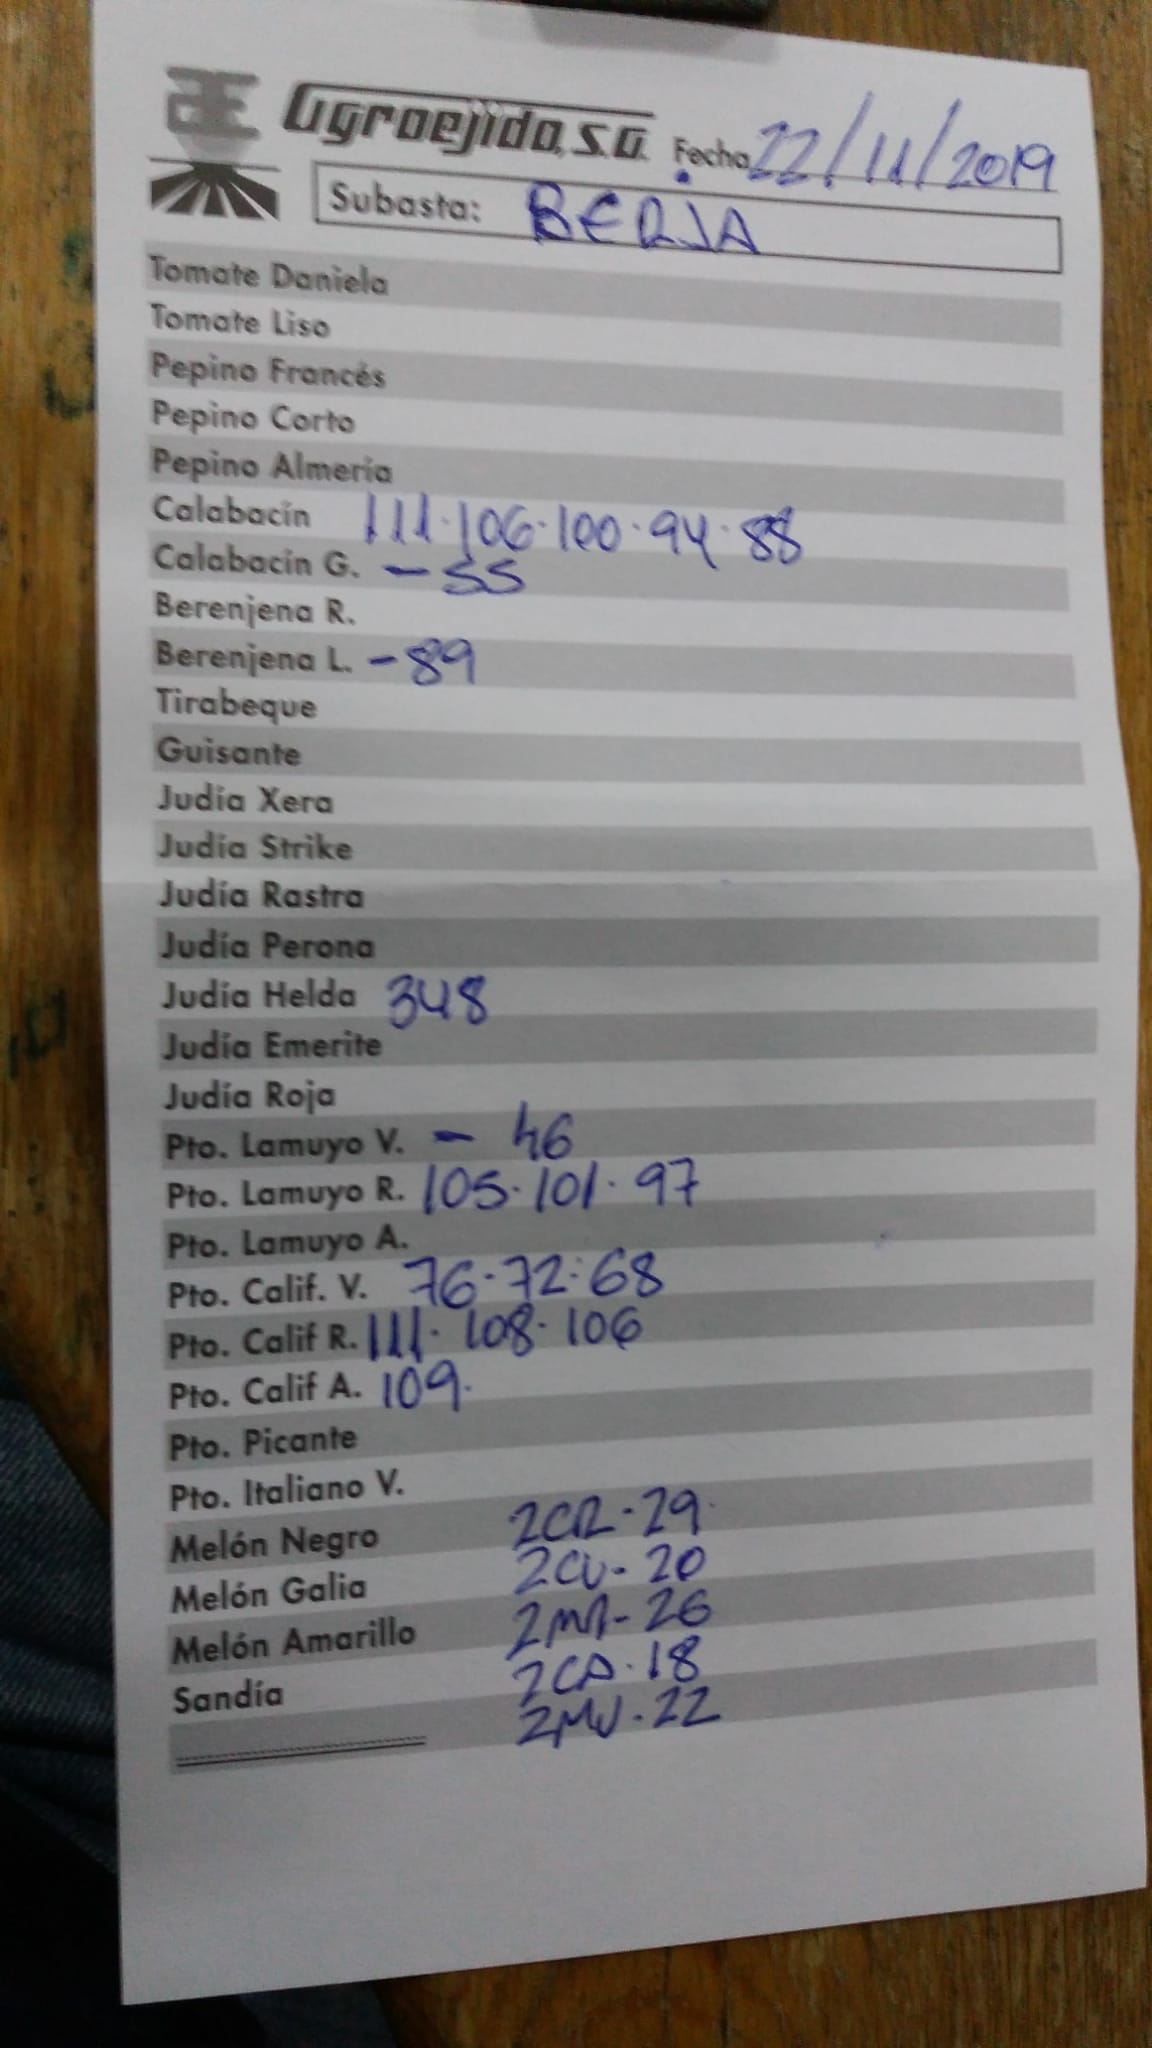 Agroejido, S.A. Fecha 22/11/2019
Subasta: BERJA
Tomate Daniela
Tomate Liso
Pepino Francés
Pepino Corto
Pepino Almería
Calabacín 111·106·100·94·88
Calabacín G. - 55
Berenjena R.
Berenjena L. - 89
Tirabeque
Guisante
Judía Xera
Judía Strike
Judía Rastra
Judía Perona
Judía Helda 348
Judía Emerite
Judía Roja
Pto. Lamuyo V. - 46
Pto. Lamuyo R. 105·101·97
Pto. Lamuyo A.
Pto. Calif. V. 76·72·68
Pto. Calif R. 111·108·106
Pto. Calif A. 109.
Pto. Picante
Pto. Italiano V.
Melón Negro 2CR-29
Melón Galia 2CV-20
Melón Amarillo 2MR-26
Sandía 2CA·18
2MV·22